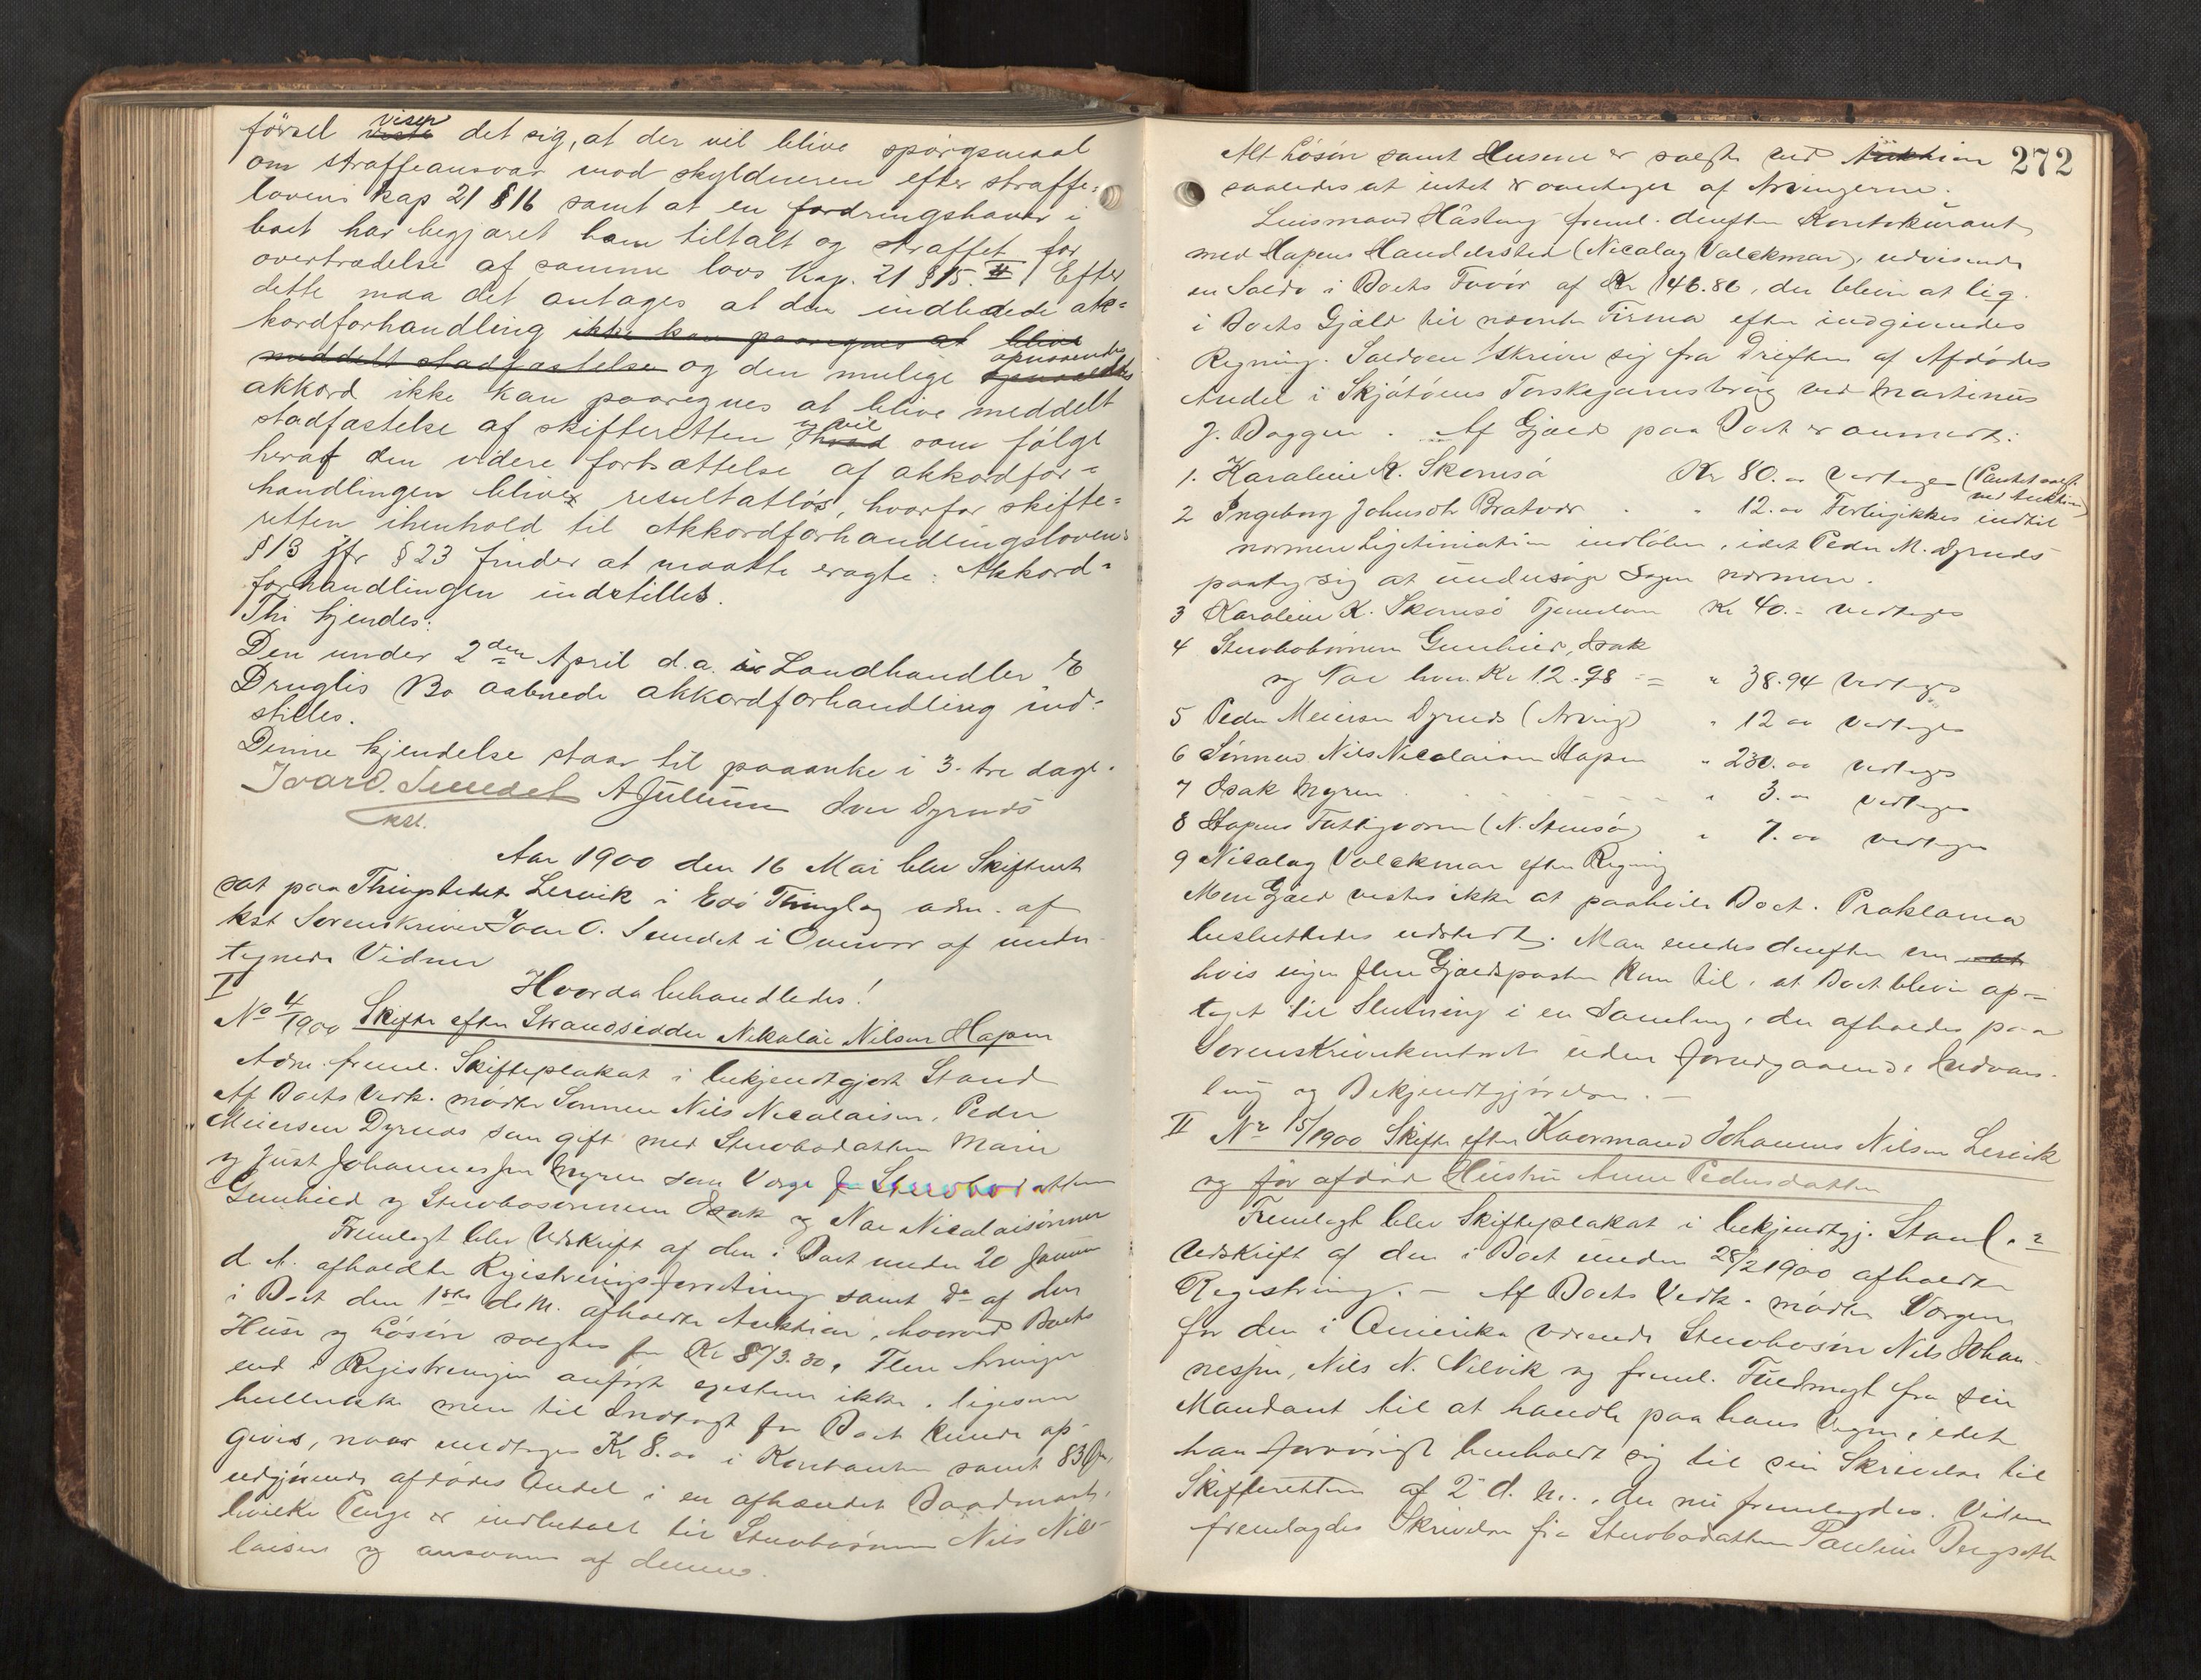 førsel viser viste det sig, at der vil blive spørgsmaal
om straffeansvar mod skyldneren efter straffe=
lovens kap 21 § 16 samt at en fordringshaver i
boet har begjæret ham tiltalt og straffet for
overtrædelse af samme lovs kap. 21 § 15. Efter
dette maa det antages at den indledede ak=
kordforhandling ikke kan paaregnes at blive
meddelt stadfæstelse og den mulige opnaaendes
akkord ikke kan paaregnes at blive meddelt
stadfæstelse af skifteretten og vil hved som følge
heraf den videre fortsættelse af akkordfor=
handlingen blive resultatløs, hvorfor skifte=
retten ihenhold til Akkordforhandlingslovens
§ 13 jfr § 23 finder at maatte eragte: Akkord=
forhandlingen indstilles.
Thi kjendes:
Den under 2den April d.a. i Landhandler E
Druglis Bo aabnede akkordforhandling ind=
stilles.
Denne kjendelse staar til paaanke i 3. tre dage.
Ivar O. Sundet A Jullum Iver Dyrnes
kst.
Aar 1900 den 16 Mai blev Skifteret
sat paa Thingstedet Lervik i Edø Thinglag adm. af
kst Sorenskriver Ivar O. Sundet i Overvær af under
tegnede Vidner
Hvorda behandledes!
I
No 4/1900 Skifte efter Strandsidder Nikolai Nilsen Hapen
Adm. freml. Skifteplakat i bekjendtgjort Stand
Af Boets Vedk. mødte Sønnen Nils Nicolaisen, Peder
Meiersen Dyrnes som gift med Stervbodatteren Marie
og Just Johannessen Myren som Værge for Stervbodatteren
Gunhild og Stervbosønnerne Isak og Noe Nicolaisønner
Fremlagt blev Udskrift af den i Boet under 20 Januar
d A. afholdte Registreringsforretning samt do af den
i Boet den 1ste ds M. afholdte Auktion, hvorved Boets
Huse og Løsøre solgtes for Kr 873.30. Flere Arvinger
end i Registreringen anført existerer ikke, ligesom
hellerikke mere til Indtægt for Boet kunde op=
gives, naar undtages Kr 8.00 i Kontanter samt 83 Øre,
udgjørende afdødes Andel i en afhændet
hvilke Penge er indbetalt til Stervbosønnen Nils Nik=
laisen og ansvares af denne.
272
Alt Løsøre samt Husene er solgte ved Auktion
saaledes at intet er overtaget af Arvingerne.
Lensmand Håstung freml. derefter Kontokurant
med Hapens Handelssted (Nicolay Volckmar), udvisende
en Saldo i Boets Favør af Kr 146.86, der bliver at lig.
i Boets Gjæld til nævnte Firma efter indgivendes
Regning. Saldoen skriver sig fra Driften af Afdødes
Andel i Skjøtøens Torskegarnsbrug ved Martinus
J. Baggen. Af Gjæld paa Boet er anmeldt:
1. Karoline K. Skomsø Kr 80.00 Vedtages (Pantet solgt
ved Auktion)
2 Ingeborg Johnsdtr Bratvær " 12.00 Vedtagikkes indtil
nærmere Legitimation indløber, idet Peder M. Dyrnes
paatog sig at undersøge Sagen nærmere.
3 Karoline K. Skomsø Tjenerløn Kr 40.- vedtages
4 Stervbobørnene Gunhild, Isak
og Noe hver Kr 12.98 = " 38.94 Vedtages
5 Peder Meiersen Dyrnes (Arving) " 12.00 vedtages
6 Sønnen Nils Nicolaisen Hapen " 230.00 vedtages
7 Isak Myren " 3.00 vedtages
8 Hapens Fattigvæsen (N. Stensø) " 7.00 vedtages
9 Nicolay Volckmar efter Regning
Mere Gjæld vistes ikke at paahvile Boet. Proklama
besluttedes udstedt. Man enedes derefter om at
hvis ingen flere Gjældsposter kom til, at Boet bliver op=
taget til Slutning i en Samling, der afholdes paa
Sorenskriverkontoret uden foregaaende Indvars=
ling og Bekjendtgjørelse. —
II No 15/1900 Skifte efter Kaarmand Johannes Nilsen Lervik
og før afdød Hustru Anne Pedersdatter
Fremlagt blev Skifteplakat i bekjendtgj. Stand. =
Udskrift af den i Boet under 28/2 1900 afholdte
Registrering. — Af Boets Vedk. mødte Værgen
for den i Amerika værende Stervbosøn Nils Johan=
nessen, Nils N. Nelvik og freml. Fuldmagt fra sin
Mandant til at handle paa hans Vegne, idet
han forøvrigt henholdt sig til sin Skrivelse til
Skifteretten af 2 d. M., der nu fremlagdes. Videre
fremlagdes Skrivelse fra Stervbodatteren Pauline Bergseth